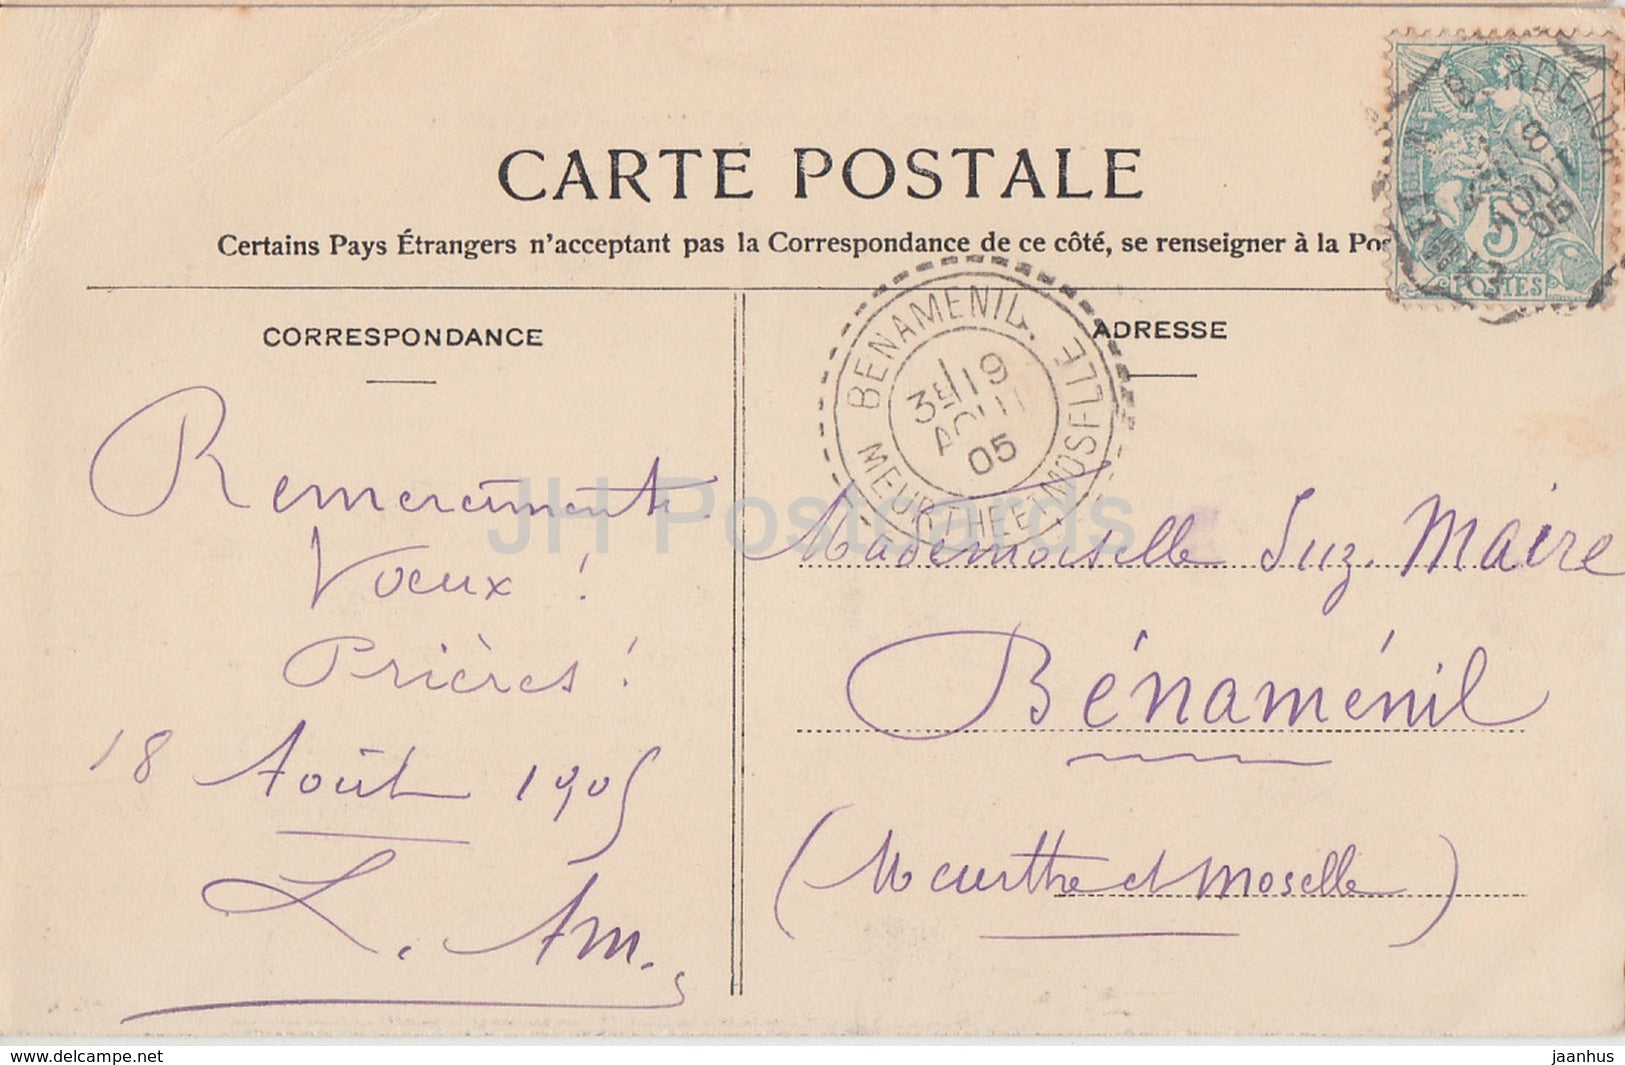 CARTE POSTALE
Certains Pays Étrangers n'acceptant pas la Correspondance de ce côté, se renseigner à la Pos
CORRESPONDANCE
ADRESSE
Remerciements
Voeux !
Prières !
18 Août 1905
L. Am.
Mademoiselle Suz. Maire
Bénaménil
(Meurthe et Moselle)
BENAMENIL.
MEURTHE ET MOSELLE
3E 19
AOUT
05
18
AOUT
05
5
POSTES
JH Postcards
www.delcampe.net
jaanhus